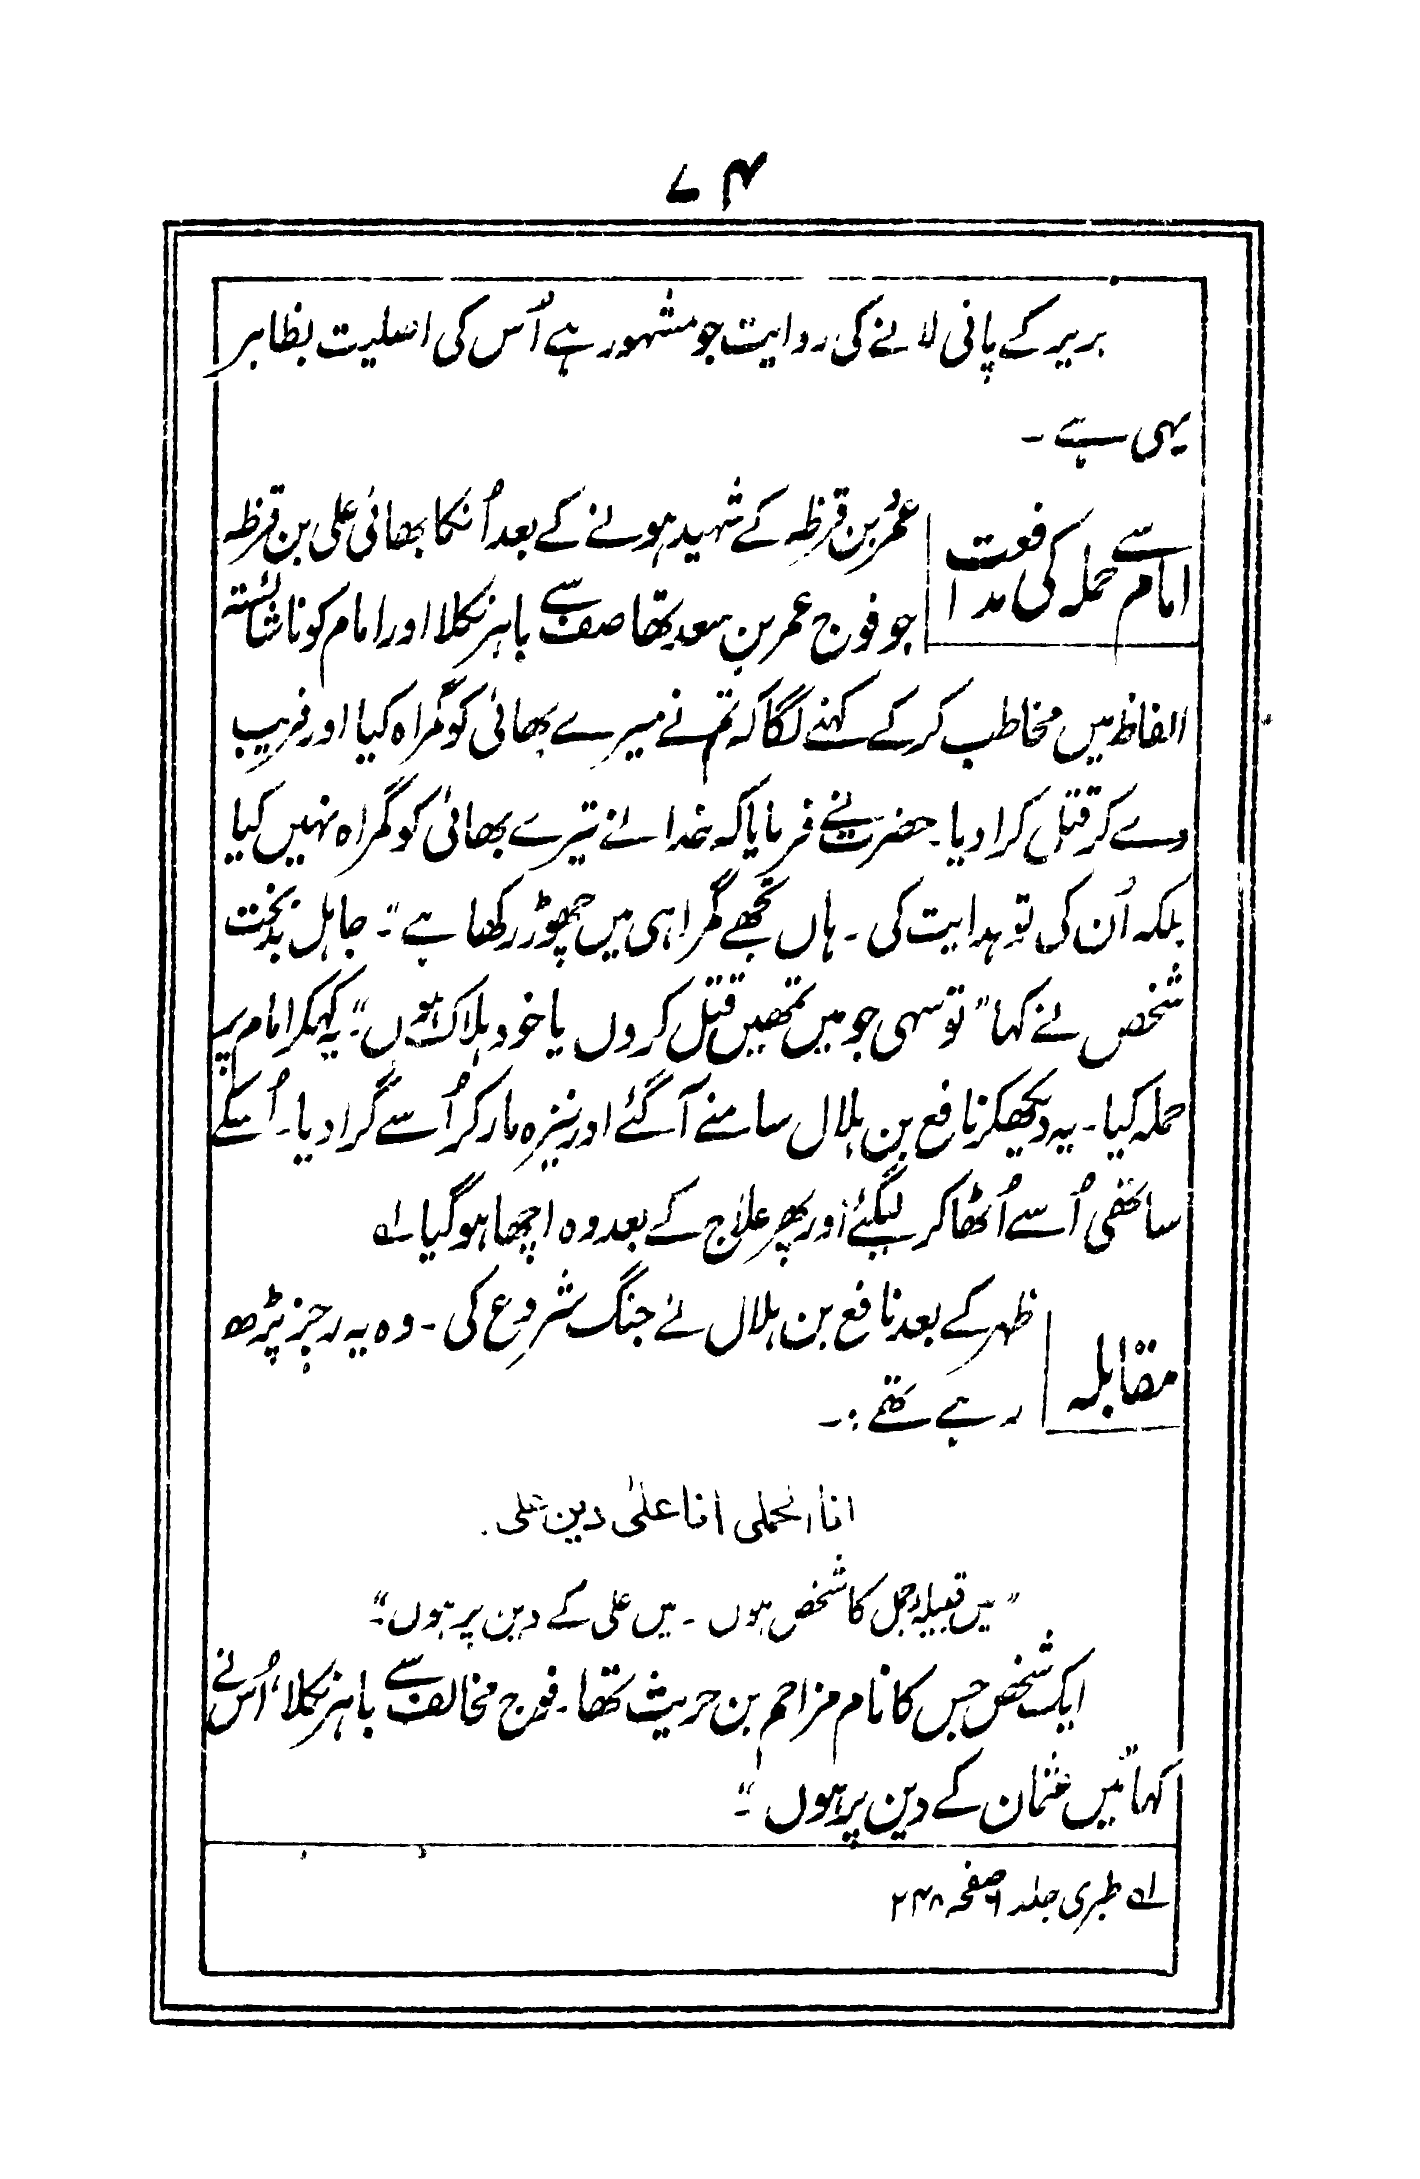 ۷۴
بریر کے پانی لانے کی روایت جو مشہور ہے اُس کی اصلیت بظاہر
یہی ہے ۔
امام سے حملہ کی مدافعت
عمرُ بن قرظہ کے شہید ہونے کے بعد اُنکا بھائی علی بن قرظہ
جو فوج عمر بن سعد تھا صف سے باہر نکلا اور امام کو ناشائستہ
الفاظ میں مخاطب کر کے کہنے لگا کہ تم نے میرے بھائی کو گمراہ کیا اور فریب
دے کر قتل کرا دیا۔ حضرت نے فرمایا کہ خدا نے تیرے بھائی کو گمراہ نہیں کیا
بلکہ اُن کی تو ہدایت کی ۔ ہاں تجھے گمراہی میں چھوڑ رکھا ہے "۔ جاہل بدبخت
شخص نے کہا "تو سہی جو میں تمھیں قتل کروں یا خود ہلاک ہوں"۔ یہ کہکر امام پر
حملہ کیا۔ یہ دیکھکر نافع بن ہلال سامنے آ گئے اور نیزہ مار کر اُسے گرا دیا۔ اُسکے
ساتھی اُسے اُٹھا کر لیگئے اور پھر علاج کے بعد وہ اچھا ہو گیا لہ
مقابلہ
ظہر کے بعد نافع بن ہلال نے جنگ شروع کی ۔ وہ یہ رجز پڑھ
رہے تھے :۔
انا الجملی انا علیٰ دین علی.
"میں قبیلۂ جمل کا شخص ہوں ۔ میں علی کے دین پر ہوں"۔
ایک شخص جس کا نام مزاحم بن حریث تھا۔ فوج مخالف سے باہر نکلا، اُس نے
کہا "میں عثمان کے دین پر ہوں "۔
لہ طبری جلد ۶ صفحہ ۲۴۸